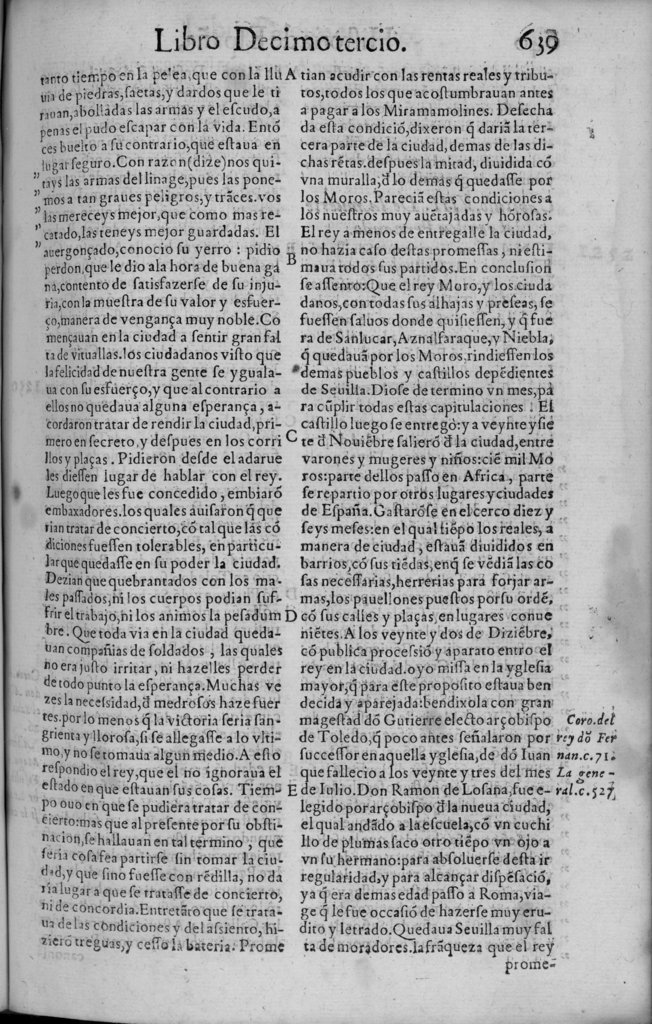 Libro Decimotercio. 639
tanto tiempo en la pelea, que con la llu
uia de piedras, saetas, y dardos que le ti
rauan, abolladas las armas y el escudo, a
penas el pudo escapar con la vida. Entõ
ces buelto a su contrario, que estaua en
lugar seguro. Con razon (dize) nos qui-
" tays las armas del linage, pues las pone-
" mos a tan graues peligros, y trãces. vos
" las mereceys mejor, que como mas re-
" catado, las teneys mejor guardadas. El
auergonçado, conocio su yerro : pidio
perdon, que le dio ala hora de buena ga
na, contento de satisfazerse de su inju-
ria, con la muestra de su valor y esfuer-
ço, manera de vengança muy noble. Co
mençauan en la ciudad a sentir gran fal
ta de vituallas. los ciudadanos visto que
la felicidad de nuestra gente se yguala-
ua con su esfuerço, y que al contrario a
ellos no quedaua alguna esperança, a-
cordaron tratar de rendir la ciudad, pri-
mero en secreto, y despues en los corri
llos y plaças. Pidieron desde el adarue
les diessen lugar de hablar con el rey.
Luego que les fue concedido, embiarõ
embaxadores. los quales auisaron q̃ que
rian tratar de concierto, cõ tal que las cõ
diciones fuessen tolerables, en particu-
lar que quedasse en su poder la ciudad.
Dezian que quebrantados con los ma-
les passados, ni los cuerpos podian suf-
frir el trabajo, ni los animos la pesadum
bre. Que toda via en la ciudad queda-
uan compañias de soldados, las quales
no era justo irritar, ni hazelles perder
de todo punto la esperança. Muchas ve
zes la necessidad, d̃ medrosos haze fuer
tes. por lo menos q̃ la victoria seria san-
grienta y llorosa, si se allegasse a lo vlti-
mo, y no se tomaua algun medio. A esto
respondio el rey, que el no ignoraua el
estado en que estauan sus cosas. Tiem-
po ouo en que se pudiera tratar de con-
cierto: mas que al presente por su obsti-
nacion, se hallauan en tal termino, que
seria cosa fea partirse sin tomar la ciu-
dad, y que sino fuesse con rẽdilla, no da
ria lugar a que se tratasse de concierto,
ni de concordia. Entretãto que se trata-
ua de las condiciones y del assiento, hi-
zierõ treguas, y cesso la bateria. Prome
A
B
C
D
E
tian acudir con las rentas reales y tribu-
tos, todos los que acostumbrauan antes
a pagar a los Miramamolines. Desecha
da esta condiciõ, dixeron q̃ dariã la ter-
cera parte de la ciudad, demas de las di-
chas rẽtas. despues la mitad, diuidida cõ
vna muralla, d̃ lo demas q̃ quedasse por
los Moros. Pareciã estas condiciones a
los nuestros muy auẽtajadas y hõrosas.
El rey a menos de entregalle la ciudad,
no hazia caso destas promessas, ni esti-
maua todos sus partidos. En conclusion
se assento: Que el rey Moro, y los ciuda
danos, con todas sus alhajas y preseas, se
fuessen saluos donde quisiessen, y q̃ fue
ra de Sanlucar, Aznalfaraque, y Niebla,
q̃ quedauã por los Moros, rindiessen los
demas pueblos y castillos depẽdientes
de Seuilla. Diose de termino vn mes, pa
ra cũplir todas estas capitulaciones : El
castillo luego se entregò: y a veynte y sie
te d̃ Nouiẽbre salierõ d̃ la ciudad, entre
varones y mugeres y niños: ciẽ mil Mo
ros: parte dellos passo en Africa, parte
se repartio por otros lugares y ciudades
de España. Gastarõse en el cerco diez y
seys meses: en el qual tiẽpo los reales, a
manera de ciudad, estauã diuididos en
barrios, cõ sus tiẽdas, enq̃ se vẽdiã las co
sas necessarias, herrerias para forjar ar-
mas, los pauellones puestos por su ordẽ,
cõ sus calles y plaças, en lugares conue
niẽtes. A los veynte y dos de Diziẽbre,
cõ publica processiõ y aparato entro el
rey en la ciudad. oyo missa en la yglesia
mayor, q̃ para este proposito estaua ben
decida y aparejada: bendixola con gran
magestad dõ Gutierre electo arçobispo
de Toledo, q̃ poco antes señalaron por
successor en aquella yglesia, de dõ Iuan
que fallecio a los veynte y tres del mes
de Iulio. Don Ramon de Losana, fue e-
legido por arçobispo d̃ la nueua ciudad,
el qual andãdo a la escuela, cõ vn cuchi
llo de plumas saco otro tiẽpo vn ojo a
vn su hermano: para absoluerse desta ir
regularidad, y para alcançar dispẽsaciõ,
ya q̃ era demas edad passo a Roma, via-
ge q̃ le fue occasiõ de hazerse muy eru-
dito y letrado. Quedaua Seuilla muy fal
ta de moradores. la frãqueza que el rey
prome-
Coro. del
rey dõ Fer
nan. c. 71.
La gene-
ral. c. 527